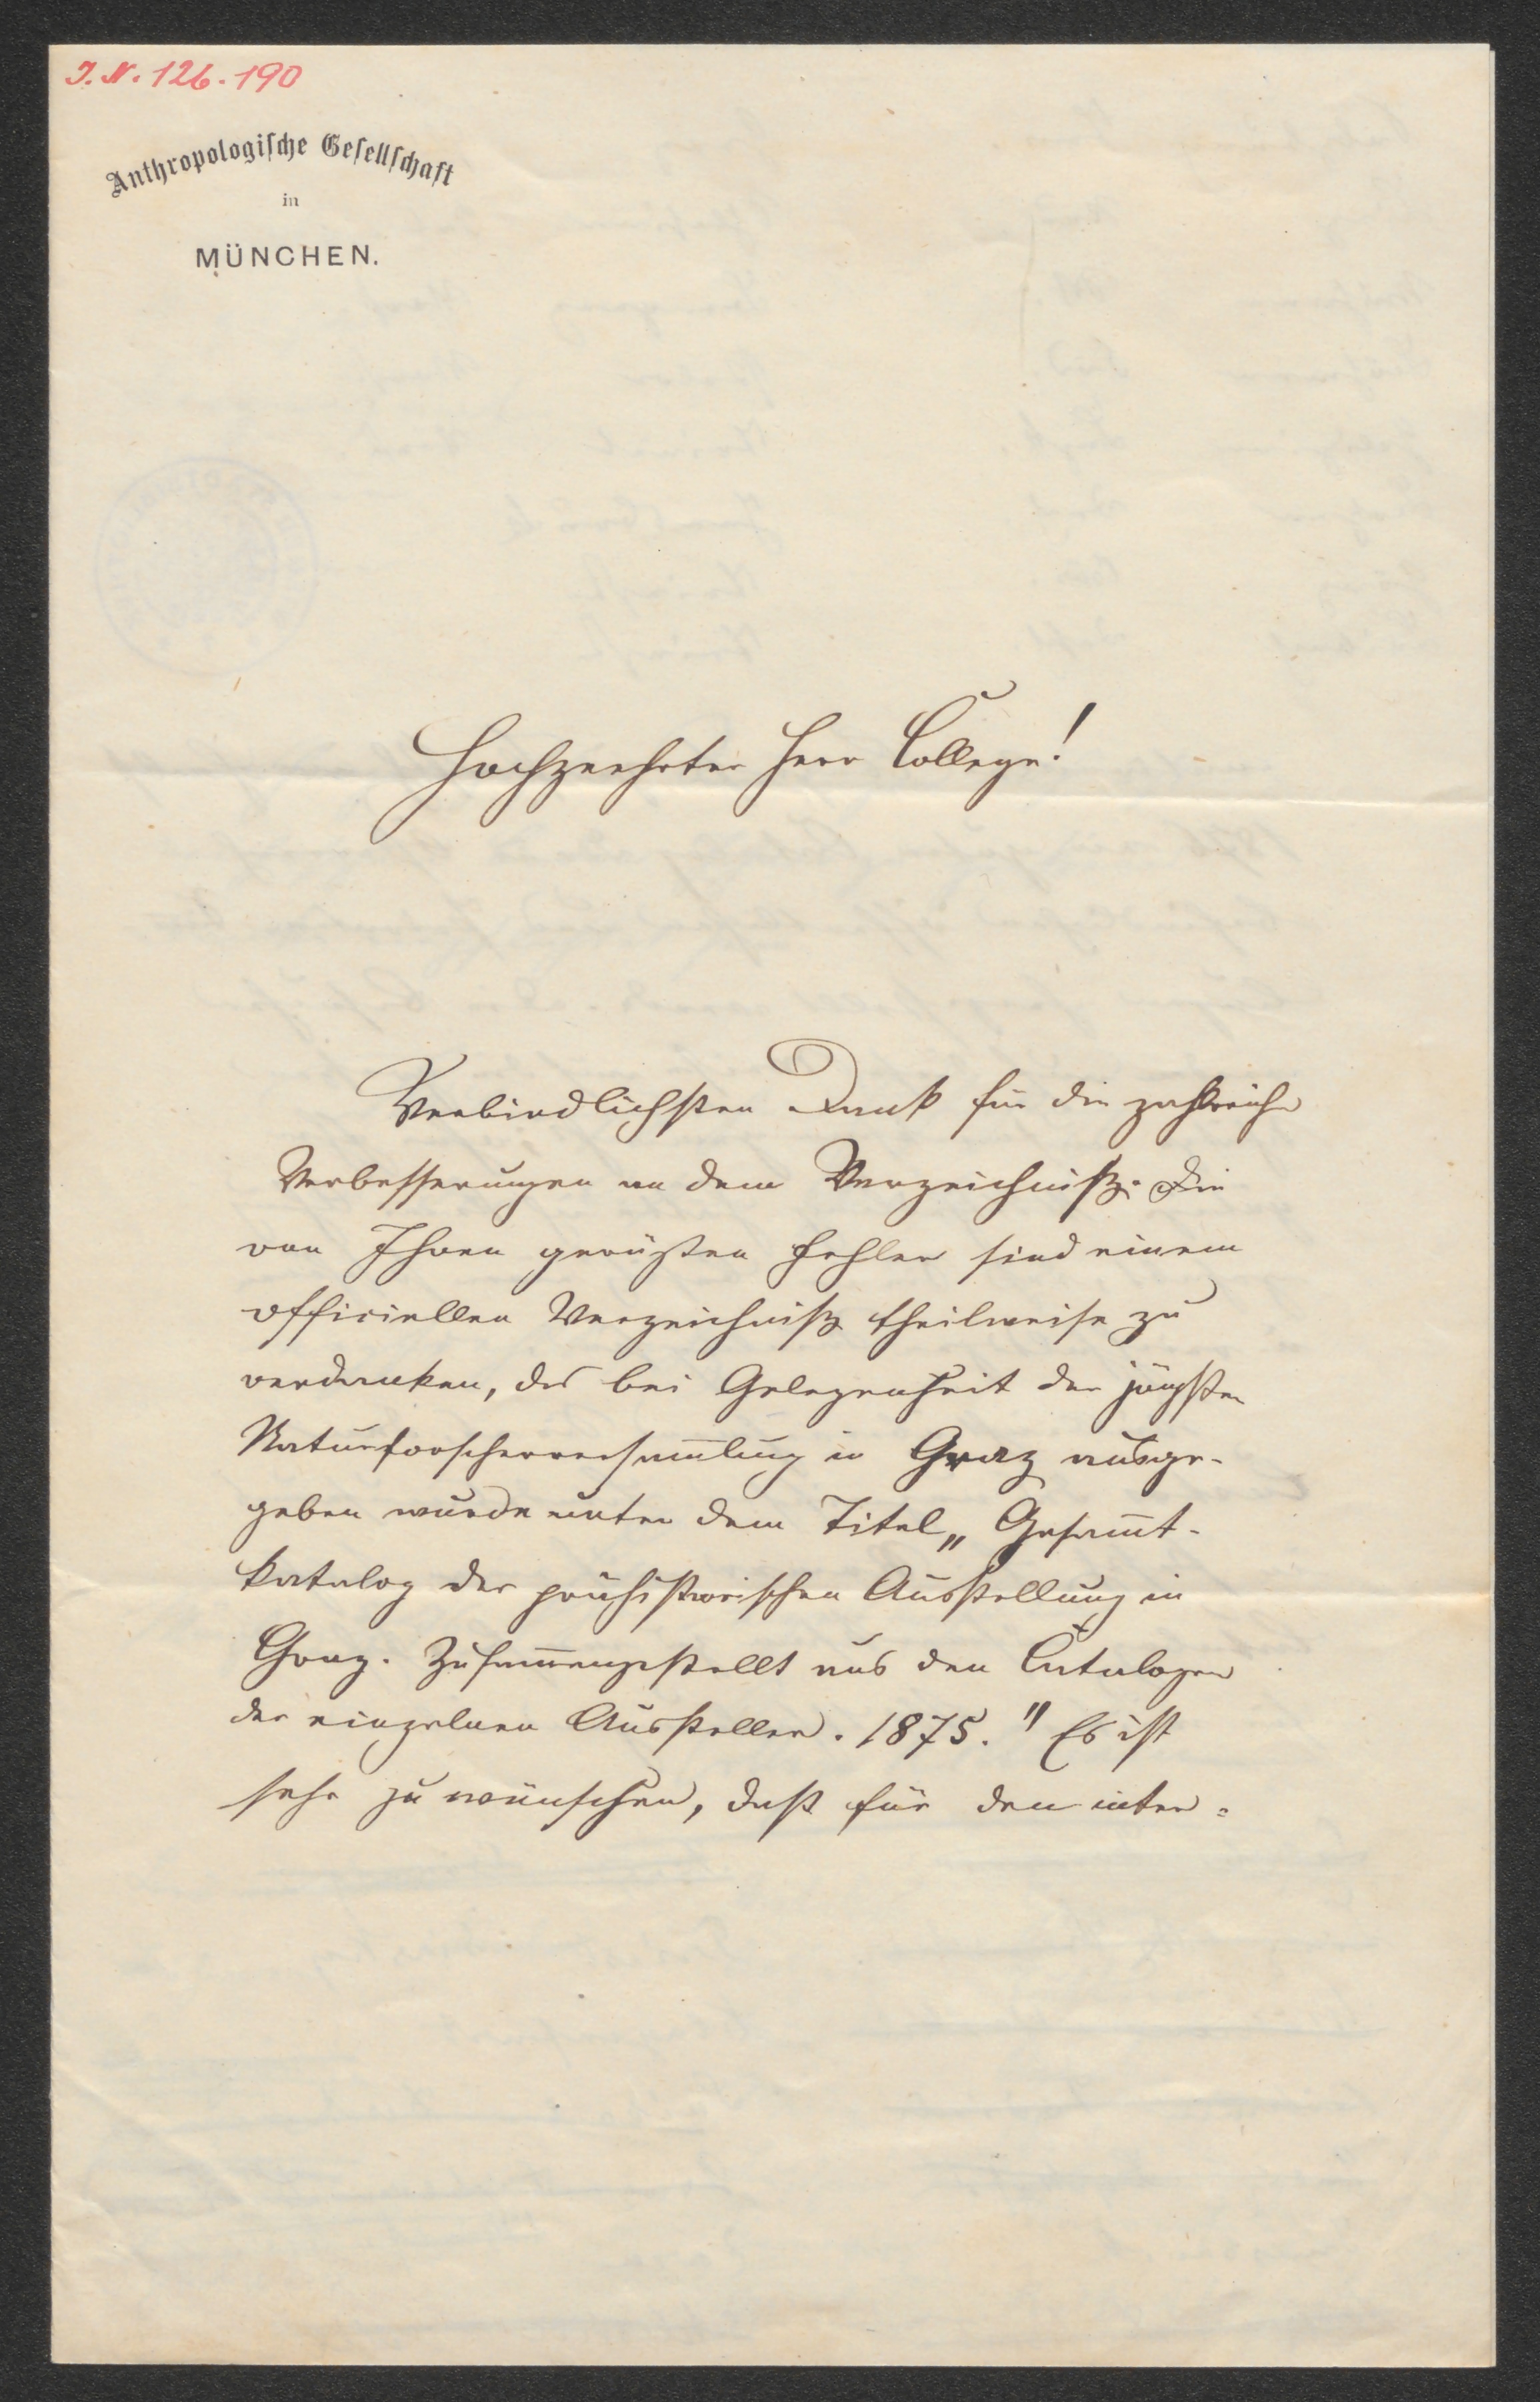 J. N. 126.190
Anthropologische Gesellschaft
in
MÜNCHEN.
Hochgeehrter Herr College!
Verbindlichsten Dank für die zahlreichen
Verbesserungen an dem Verzeichniß. Die
von Ihnen gerügten Fehler sind einem
officiellen Verzeichniß theilweise zu
verdanken, das bei Gelegenheit der jüngsten
Naturforscherversam̅lung in Graz ausge-
geben wurde unter dem Titel „Gesam̅t-
katalog der prähistorischen Ausstellung in
Graz. Zusam̅engestellt aus den Catalogen
der einzelnen Aussteller. 1875." Es ist
sehr zu wünschen, daß für den inter-